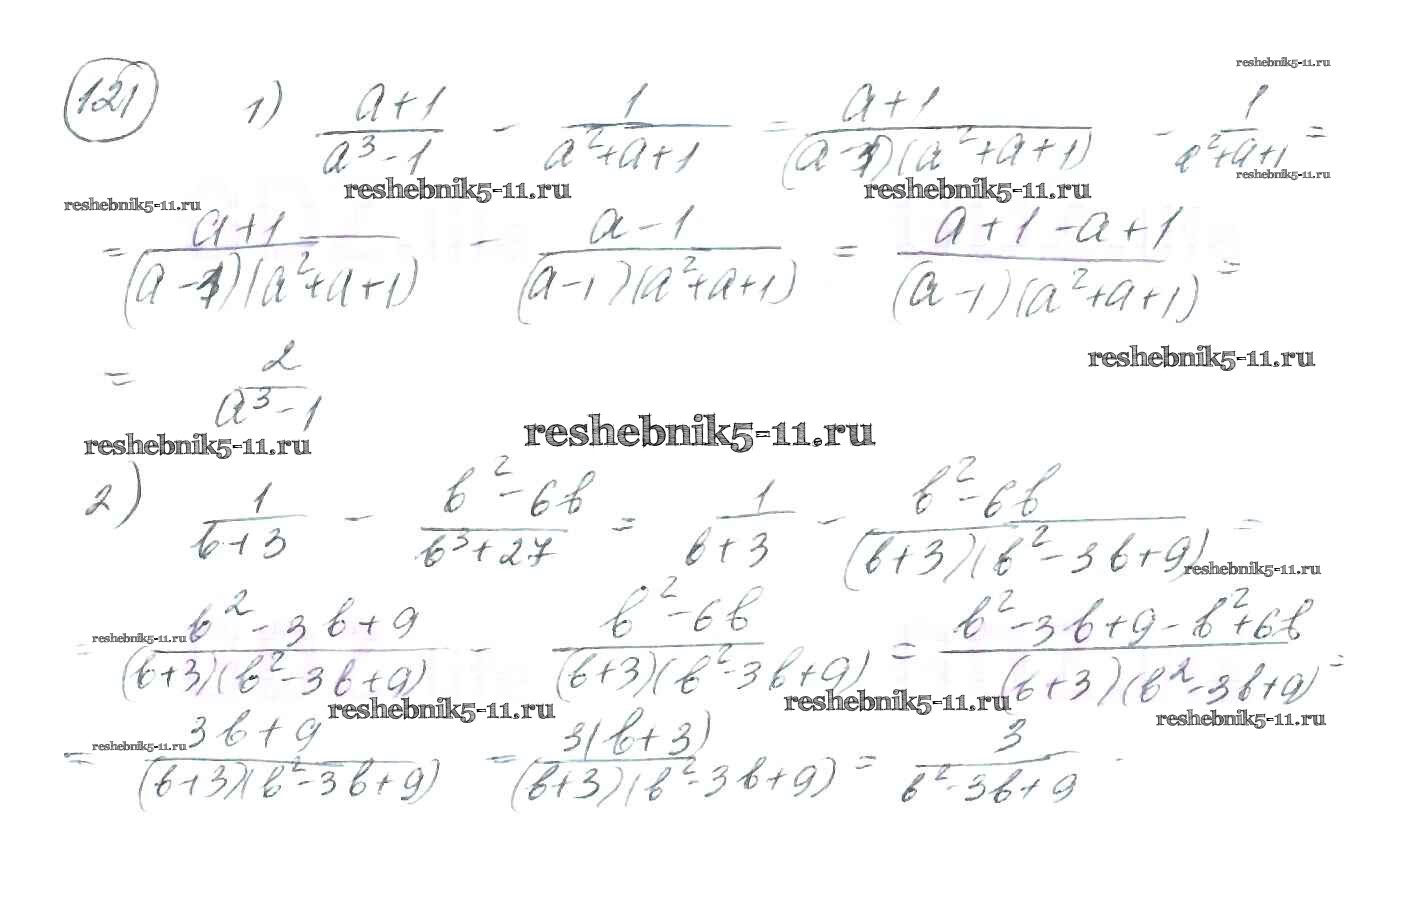 reshebnik5-11.ru
121 1) (a+1)/(a³-1) - 1/(a²+a+1) = (a+1)/((a-1)(a²+a+1)) - 1/(a²+a+1) =
reshebnik5-11.ru reshebnik5-11.ru reshebnik5-11.ru
reshebnik5-11.ru
= (a+1)/((a-1)(a²+a+1)) - (a-1)/((a-1)(a²+a+1)) = (a+1-a+1)/((a-1)(a²+a+1)) =
reshebnik5-11.ru
= 2/(a³-1)
reshebnik5-11.ru reshebnik5-11.ru
2) 1/(в+3) - (в²-6в)/(в³+27) = 1/(в+3) - (в²-6в)/((в+3)(в²-3в+9)) =
reshebnik5-11.ru
reshebnik5-11.ru
= (в²-3в+9)/((в+3)(в²-3в+9)) - (в²-6в)/((в+3)(в²-3в+9)) = (в²-3в+9-в²+6в)/((в+3)(в²-3в+9)) =
reshebnik5-11.ru reshebnik5-11.ru reshebnik5-11.ru
reshebnik5-11.ru
= (3в+9)/((в+3)(в²-3в+9)) = 3(в+3)/((в+3)(в²-3в+9)) = 3/(в²-3в+9)